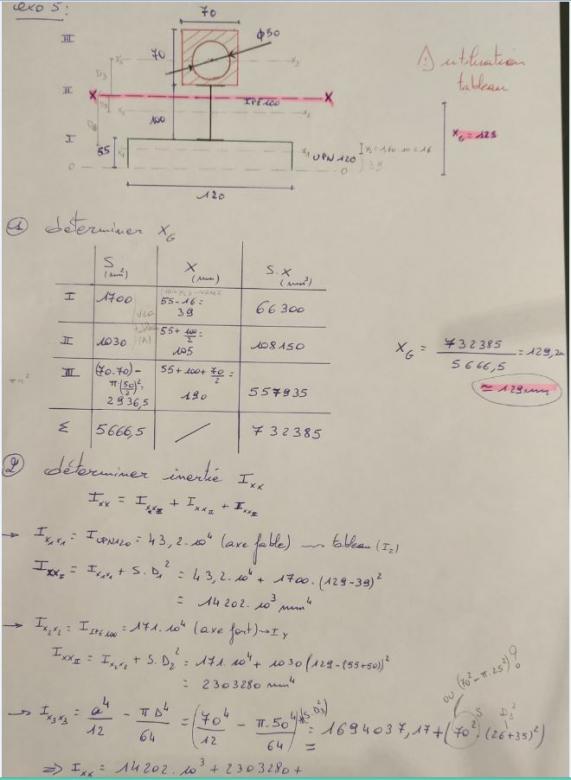 exo 5 :
70
III
70
ϕ50
⚠ utilisation
tableau
II
X
X
IPE100
100
XG = 129
I
55
UPN120
120
① déterminer XG
S (mm²) X (mm) S.X (mm³)
I 1700 55-16 = 39 66300
II 1030 55+100/2 = 105 108150
III (70.70) - π.(50/2)² 2936,5 55+100+70/2 = 190 557935
Σ 5666,5 / 732385
XG = 732385 / 5666,5 = 129,2
≈ 129 mm
② déterminer inertie Ixx
Ixx = IxxI + IxxII + IxxIII
→ Ix1x1 = IUPN120 = 43,2.10⁴ (axe faible) → tableau (Iz)
IxxI = Ix1x1 + S.D1² = 43,2.10⁴ + 1700.(129-39)²
= 14202.10³ mm⁴
→ Ix2x2 = IIPE100 = 171.10⁴ (axe fort) → Iy
IxxII = Ix2x2 + S.D2² = 171.10⁴ + 1030(129-(55+50))²
= 2303280 mm⁴
ou (70²-π.25²) ?
→ Ix3x3 = a⁴/12 - πD⁴/64 = (70⁴/12 - π.50⁴/64) + S.D3² = 1694037,17 + (70²).(26+35)²
⇒ Ixx = 14202.10³ + 2303280 +